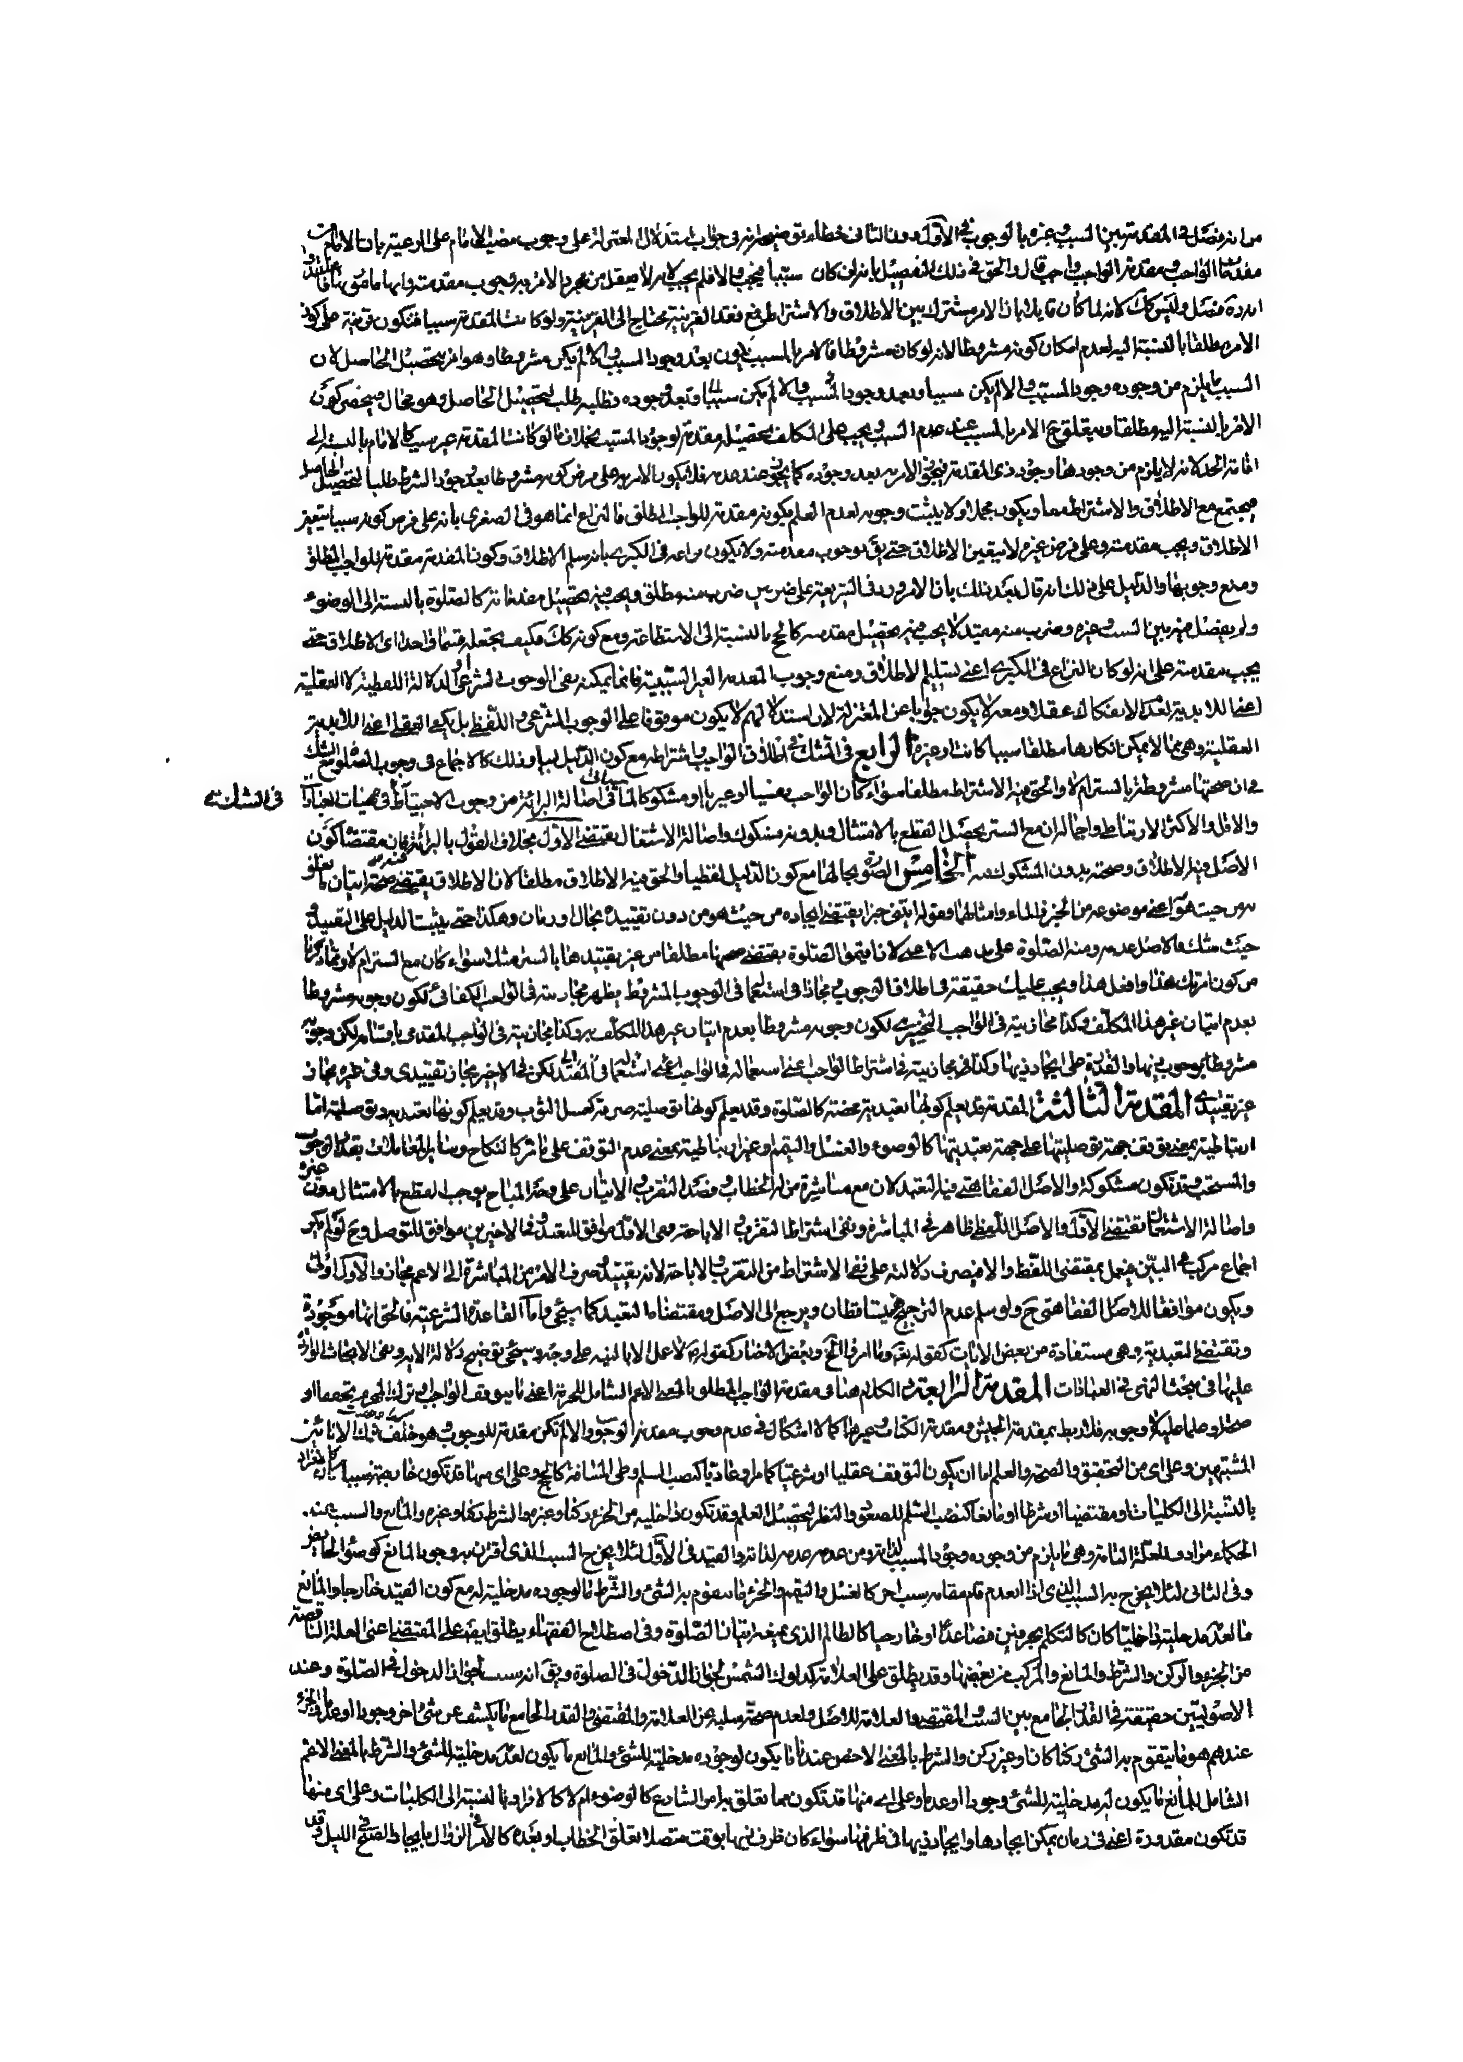 من انه فصل في المقدمة بين السبب وغيره بالوجوب في الأول دون الثاني خطاء توضيحه انه في جواب استدلال المعتزلة على وجوب نصب الامام على الرعية بان الامام
مقدمة الواجب ومقدمة الواجب واجب قال والحق في ذلك التفصيل بانه ان كان سببا فيجب والا فلم يجب لانه لا يعقل من مجرد الامر به وجوب مقدمته
فصل وليس كك لانه لما كان قايلا بان الامر مشترك بين الاطلاق والاشتراط فمع فقد القرينة محتاج الى القرينة ولو كانت المقدمة سببا فتكون قرينة على كون
الامر مطلقا بالنسبة اليه لعدم امكان كونه مشروطا لانه لو كان مشروطا فالامر بالمسبب يكون بعد وجود السبب والا لم يكن مشروطا وهو امر بتحصيل الحاصل لان
السبب ما يلزم من وجوده وجود المسبب والا لم يكن سببا وبعد وجود المسبب وطلبه طلب لتحصيل الحاصل وهو محال فينحصر كون
الامر بالنسبة اليه مطلقا ويتعلق ح الامر بالمسبب عند عدم السبب ويجب على المكلف تحصيل مقدمة لوجود المسبب بخلاف ما لو كانت المقدمة غير سبب كالامام بالنسبة الى
اقامة الحد لانه لا يلزم من وجودها وجود ذي المقدمة فيجوز الامر به بعد وجوده كما يجوز عند عدمه فلا يكون الامر به على فرض كونه مشروطا بعد وجود الشرط طلبا لتحصيل الحاصل
فيجتمع مع الاطلاق والاشتراط معا ويكون مجملا ولا يثبت وجوبه لعدم العلم بكونه مقدمة للواجب المطلق فالنزاع انما هو في الصغرى بانه على فرض كونه سببا يتعين
الاطلاق ويجب مقدمته وعلى فرض غيره لا يتعين الاطلاق حتى يق بوجوب مقدمته ولا يكون نزاعه في الكبرى بانه سلم الاطلاق وكون المقدمة مقدمة للواجب المطلق
ومنع وجوبها والدليل على ذلك انه قال بعد ذلك بان الامر ورد في الشريعة على ضربين ضرب منه مطلق ويجب فيه تحصيل مقدماته كالصلوة بالنسبة الى الوضوء
ولم يفصل فيه بين السبب وغيره وضرب منه مقيد لا يجب فيه تحصيل مقدمته كالحج بالنسبة الى الاستطاعة ومع كونه كك فكيف يجعله قسما واحدا اي الاطلاق حتى
يجب مقدمته على انه لو كان النزاع في الكبرى اعني تسليم الاطلاق ومنع وجوب المقدمة الغير السببية فانما يمكنه نفي الوجوب الشرعي او الدلالة اللفظية لا العقلية
اعني اللابدية لعدم الانفكاك عقلا ومعه لا يكون جوابا عن المعتزلة لان استدلالهم لا يكون موقوفا على الوجوب الشرعي واللفظي بل يكفي العقلي اعني اللابدية
العقلية وهي مما لا يمكن انكارها مطلقا سببا كانت او غيره الرابع في الشك في اطلاق الواجب واشتراطه مع كون الدليل لبيا وذلك كالاجماع في وجوب الصلوة مع الشك
في ان صحتها مشروطة بالستر ام لا والحق فيه الاشتراط مطلقا سواء كان الواجب نفسيا او غيريا او مشكوكا لما في اصالة البرائة من وجوب الاحتياط في هيئات العبادات
في الشك في
والاقل والاكثر الارتباطي واجماله ان مع الستر يحصل القطع بالامتثال وبدونه مشكوك واصالة الاشتغال يقتضي الاول بخلاف القول بالبرائة فان مقتضاه كون
الاصل فيه الاطلاق وصحته بدون المشكوك فيه الخامس الصورة بحالها مع كون الدليل لفظيا والحق فيه الاطلاق مطلقا لان الاطلاق يقتضي صحة اتيان ما تعلق
من حيث هو اعني موضوعه من الخبز والماء وامثالهما وقوله ايتني خبزا يقتضي ايجاده من حيث هو من دون تقييده بحال او زمان وهكذا حتى يثبت الدليل على التقييد
حيث شك فالاصل عدمه ومنه الصلوة على مذهب الاعمي لان اقيموا الصلوة يقتضي صحتها مطلقا من غير تقييدها بالستر مثلا سواء كان مع الستر ام لا
من كون اترك هذا وافعل هذا ويجب عليك حقيقة في اطلاق الوجوب مجازا في استعمالها في الوجوب المشروط يظهر مجازيته في الواجب الكفائي لكون وجوبه مشروطا
بعدم اتيان غير هذا المكلف وكذا مجازيته في الواجب التخييري لكون وجوبه مشروطا بعدم اتيان غير هذا المكلف به وكذا مجازيته في الواجب المقدمي باقسامه لكون وجوبه
مشروطا بوجوب ذيها والقدرة على ايجاد ذيها وكذا مجازيته في اشتراط الواجب اعني استعماله في الواجب المقيد لكن في الاخير مجاز تقييدي وفي غيره مجاز
غير تقييدي المقدمة الثالثة المقدمة قد يعلم كونها تعبدية محضة كالصلوة وقد يعلم كونها توصلية صرفة كغسل الثوب وقد يعلم كونها تعبدية وتوصلية اما
ارتباطية بمعنى توقف جهة توصليتها على جهة تعبديتها كالوضوء والغسل والتيمم او غير ارتباطية بمعنى عدم التوقف على ما ذكر كالنكاح وساير المعاملات بقصد الوجوب
والمستحب وقد تكون مشكوكة والاصل الفقاهتي فيها التعبد لان مع مباشرة من له الخطاب وقصد التقرب والاتيان على وجه المباح يوجب القطع بالامتثال دون غيره
واصالة الاشتغال تقتضي الأول والاصل اللفظي ظاهر في المباشرة ونفي اشتراط التقرب والاباحة ففي الاول موافق للتعبد وفي الاخيرين موافق للتوصل وح لو لم يكن
اجماع مركب في البين فيعمل بمقتضى اللفظ والا فيصرف دلالته على نفي الاشتراط من التقرب والاباحة لانه تقييد وصرف الامر من المباشرة الى الاعم مجاز والاول اولى
ويكون موافقا للاصل الفقاهتي ح ولو سلم عدم الترجيح فيتساقطان ويرجع الى الاصل ومقتضاه التعبد كما سيجئ واما القاعدة الشرعية فالحق انها موجودة
وتقتضي التعبدية وهي مستفادة من بعض الايات كقوله تعالى وما امروا الخ وبعض الاخبار كقوله لا عمل الا بالنية على وجه وسيجئ توضيح دلالة الاية وبقي الابحاث الواردة
عليها في مبحث النهي في العبادات المقدمة الرابعة الكلام هنا في مقدمة الواجب المطلق بالمعنى الاعم الشامل للحرمة اعني ما يتوقف الواجب او ترك المحرم تحققا او
صحة وعلما عليه لا وجوبه فلا ربط بمقدمة الجيش ومقدمة الكتاب وغيرهما كما لا اشكال في عدم وجوب مقدمة الوجوب والا لم تكن مقدمة للوجوب هو خلف
المشتبهين وعلى اي من التحقق والصحة والعلم اما ان يكون التوقف عقليا او شرعيا كما مر او عاديا كنصب السلم وطي المسافة كالحج وعلى اي منها قد تكون خارجية سببا كان
بالنسبة الى الكليات او مقتضيا او شرطا او مانعا كنصب السلم للصعود والنظر لتحصيل العلم وقد تكون داخلية من الجزء ركنا وغيره والشرط ركنا وغيره والمانع والسبب عند
الحكماء مرادف للعلة التامة وهي ما يلزم من وجوده وجود المسبب لذاته ومن عدمه عدمه لذاته والقيد في الاول لئلا يخرج السبب الذي اقترن به وجود المانع كوضوء الحايض
وفي الثاني لئلا يخرج به السبب الذي اذا انعدم قام مقامه سبب اخر كالغسل والتيمم والجزء ما يتقوم به الشئ والشرط ما لوجوده مدخلية له مع كون القيد خارجا والمانع
ما لعدمه مدخلية داخليا كان كالتكلم بحرفين فصاعدا او خارجيا كالظالم الذي يمنع اتيان الصلوة وفي اصطلاح الفقهاء يطلق ايضا على المقتضي اعني العلة الناقصة
من الجزء والركن والشرط والمانع والمركب من بعضها وقد يطلق على العلامة كدلوك الشمس لجواز الدخول في الصلوة ويق انه سبب لجواز الدخول في الصلوة وعند
الاصوليين حقيقة في القدر الجامع بين السبب والمقتضي والعلامة للاصل ولعدم صحة سلبه عن العلامة والمقتضي والقدر الجامع ما يكشف عن شئ اخر وجودا او عدما والجزء
عندهم هو ما يتقوم به الشئ ركنا كان او غير ركن والشرط بالمعنى الاخص عندنا ما يكون لوجوده مدخلية للشئ والمانع ما يكون لعدمه مدخلية للشئ والشرط بالمعنى الاعم
الشامل للمانع ما يكون له مدخلية للشئ وجودا او عدما وعلى اي منها قد تكون مما تعلق به امر الشارع كالوضوء ام لا كالافراد بالنسبة الى الكليات وعلى اي منها
قد تكون مقدورة اعني في زمان يمكن ايجادها وايجاد ذيها في ظرفها سواء كان ظرف ذيها بوقت متصلا بتعلق الخطاب او بعده كالامر في الزوال بايجاد الصبح في الليل وقد